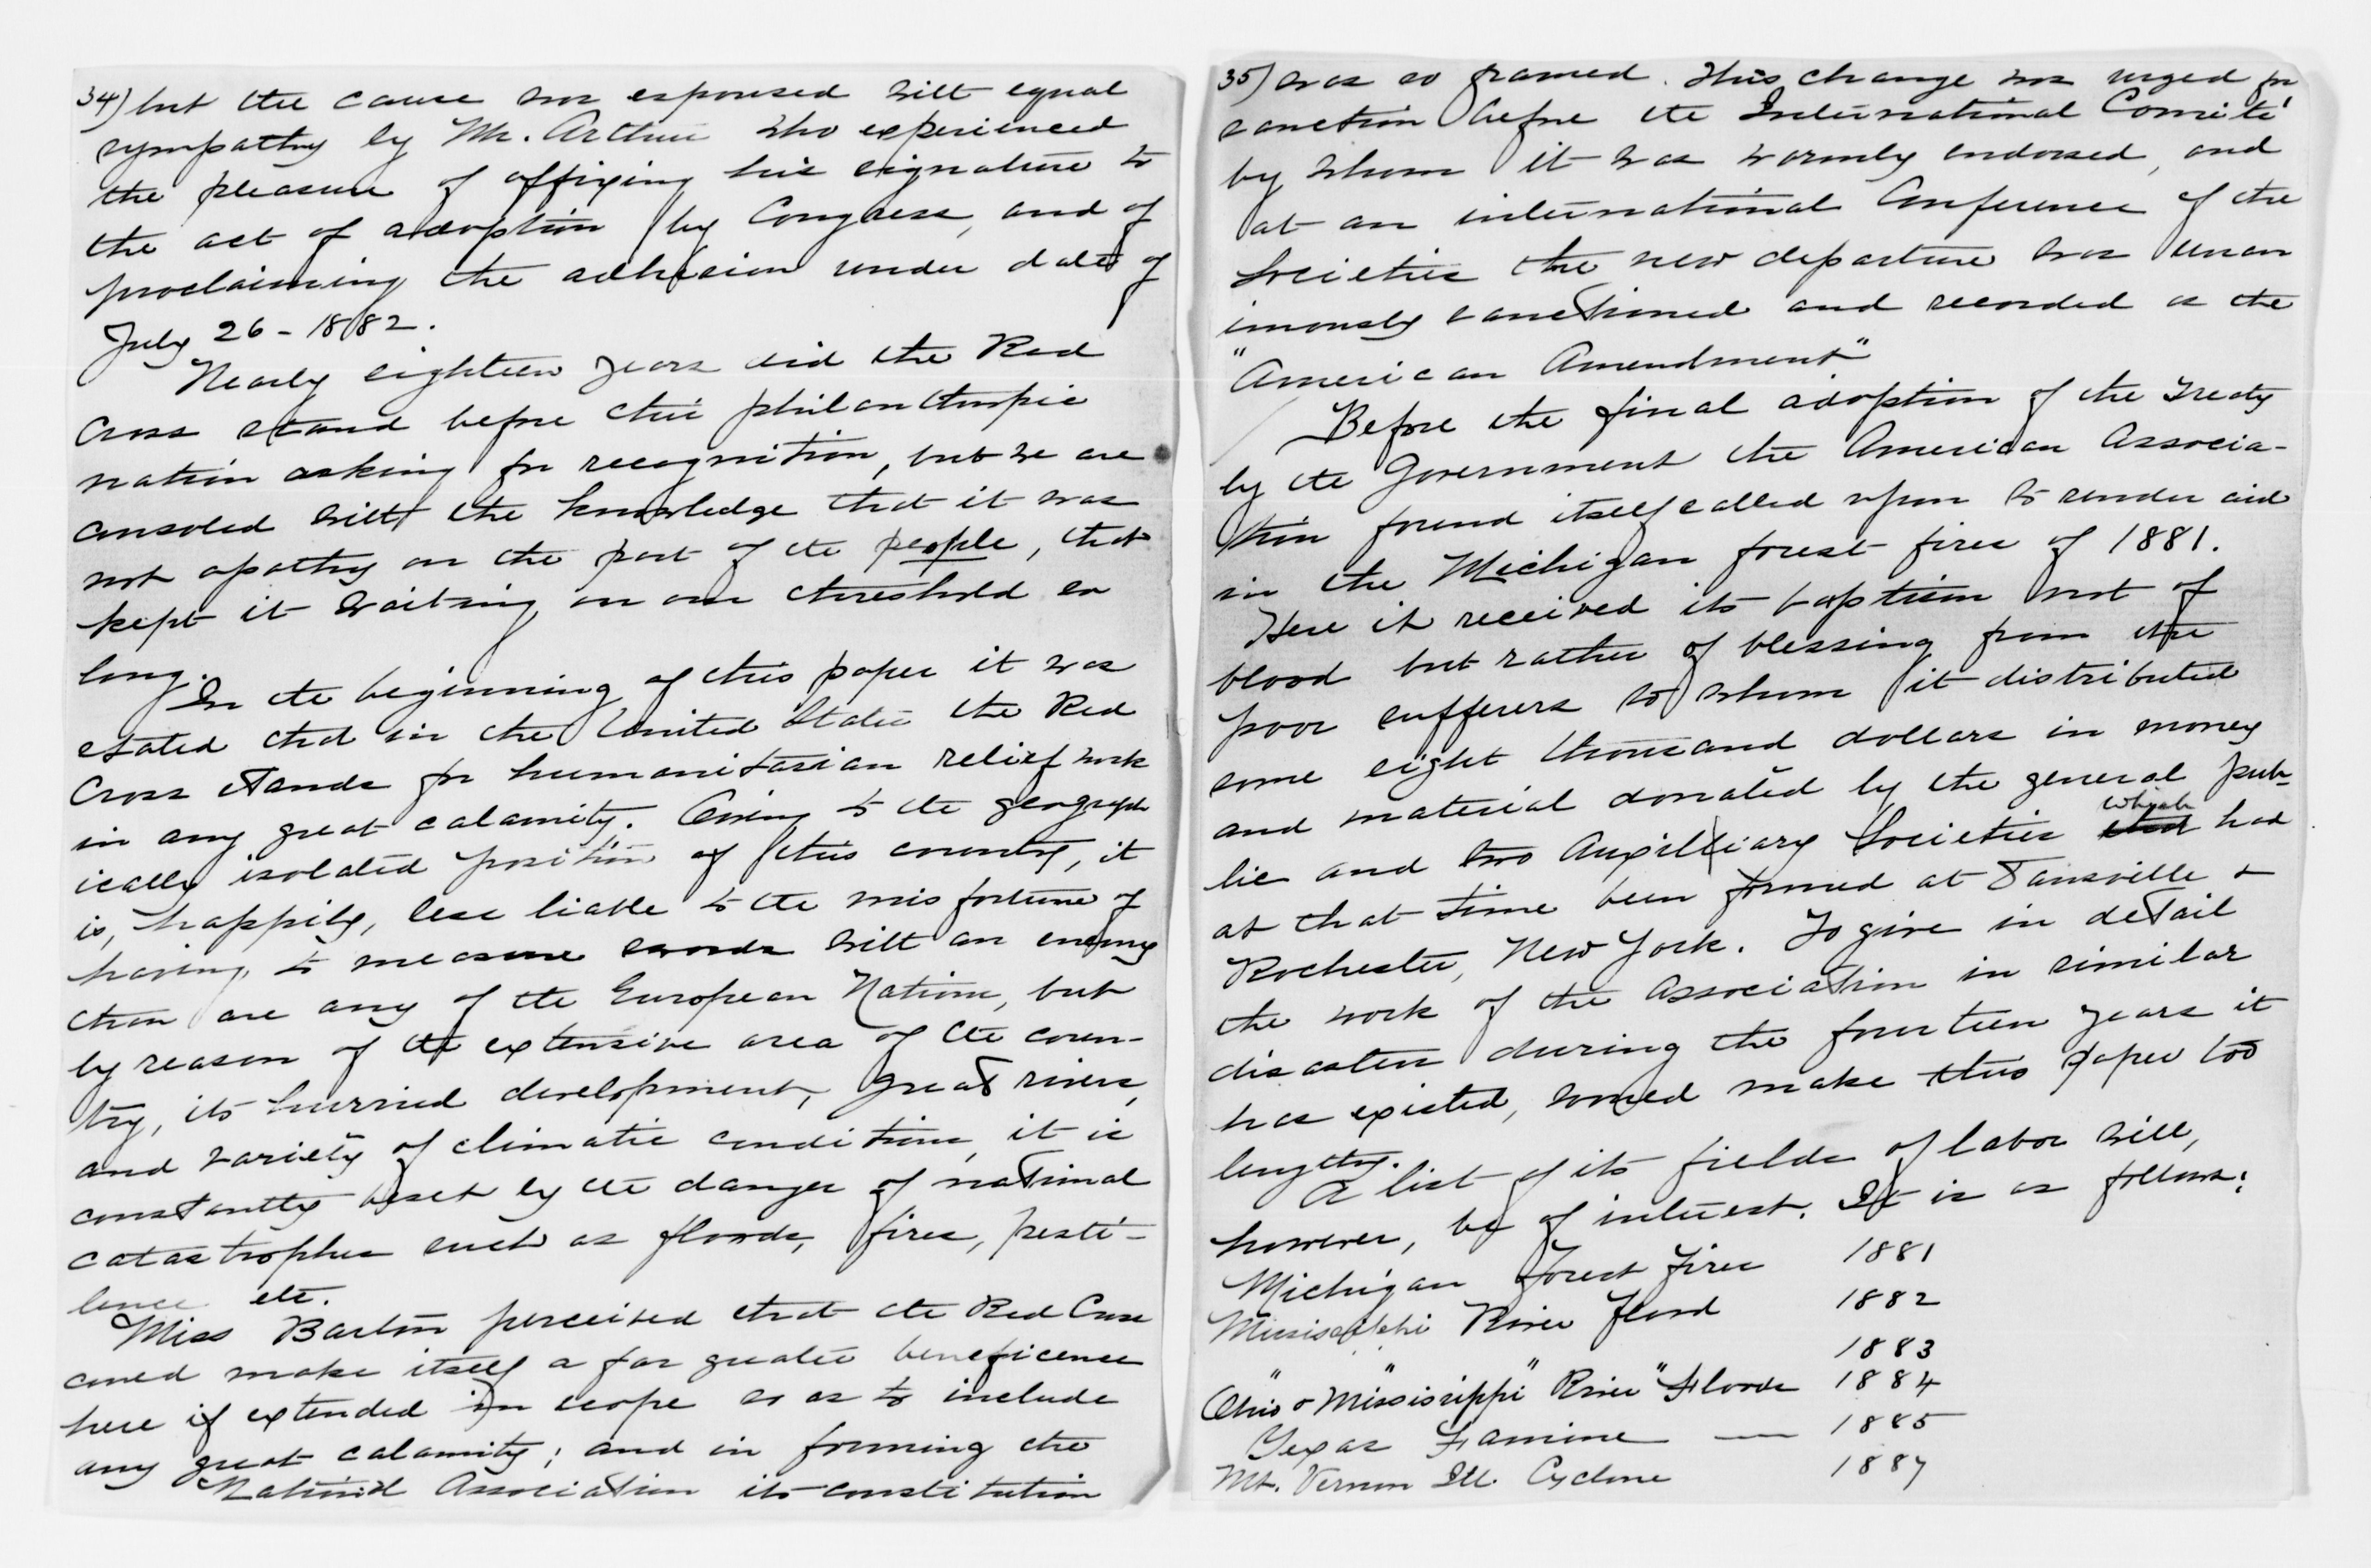 34) but the cause was espoused with equal
sympathy by Mr. Arthur who experienced
the pleasure of affixing his signature to
the act of adoption by Congress, and of
proclaiming the adhesion under date of
July 26 - 1882.
Nearly eighteen years did the Red
Cross stand before this philanthropic
nation asking for recognition, but we are
consoled with the knowledge that it was
not apathy on the part of the people, that
kept it waiting on our threshold so
long.
In the beginning of this paper it was
stated that in the United States the Red
Cross stands for humanitarian relief work
in any great calamity. Owing to the geograph
ically isolated position of this country, it
is, happily, less liable to the misfortune of
having to measure swords with an enemy
than are any of the European Nations, but
by reason of the extensive area of the coun-
try, its hurried development, great rivers,
and variety of climatic conditions, it is
constantly beset by the danger of national
catastrophes such as floods, fires, pesti-
lence etc.
Miss Barton perceived that the Red Cross
could make itself a far greater beneficence
here if extended in scope so as to include
any great calamity; and in forming the
National Association its constitution
35) was so framed. This change was urged for
sanction before the International Comité
by whom it was warmly endorsed, and
at an international Conference of the
Societies the new departure was unan
imously sanctioned and recorded as the
"American Amendment"
Before the final adoption of the Treaty
by the Government the American Associa-
tion found itself called upon to render aid
in the Michigan forest fires of 1881.
Here it received its baptism not of
blood but rather of blessing from the
poor sufferers to whom it distributed
some eight thousand dollars in money
and material donated by the general pub-
lic and two Auxilliary Societies that which had
at that time been formed at Dansville &
Rochester, New York. To give in detail
the work of the Association in similar
disasters during the fourteen years it
has existed, would make this paper too
lengthy.
A list of its fields of labor will,
however, be of interest. It is as follows:
Michigan Forest Fires 1881
Mississippi River Flood 1882
" " " " 1883
Ohio & Mississippi River Floods 1884
Texas Famine — 1885
Mt. Vernon Ill. Cyclone 1887